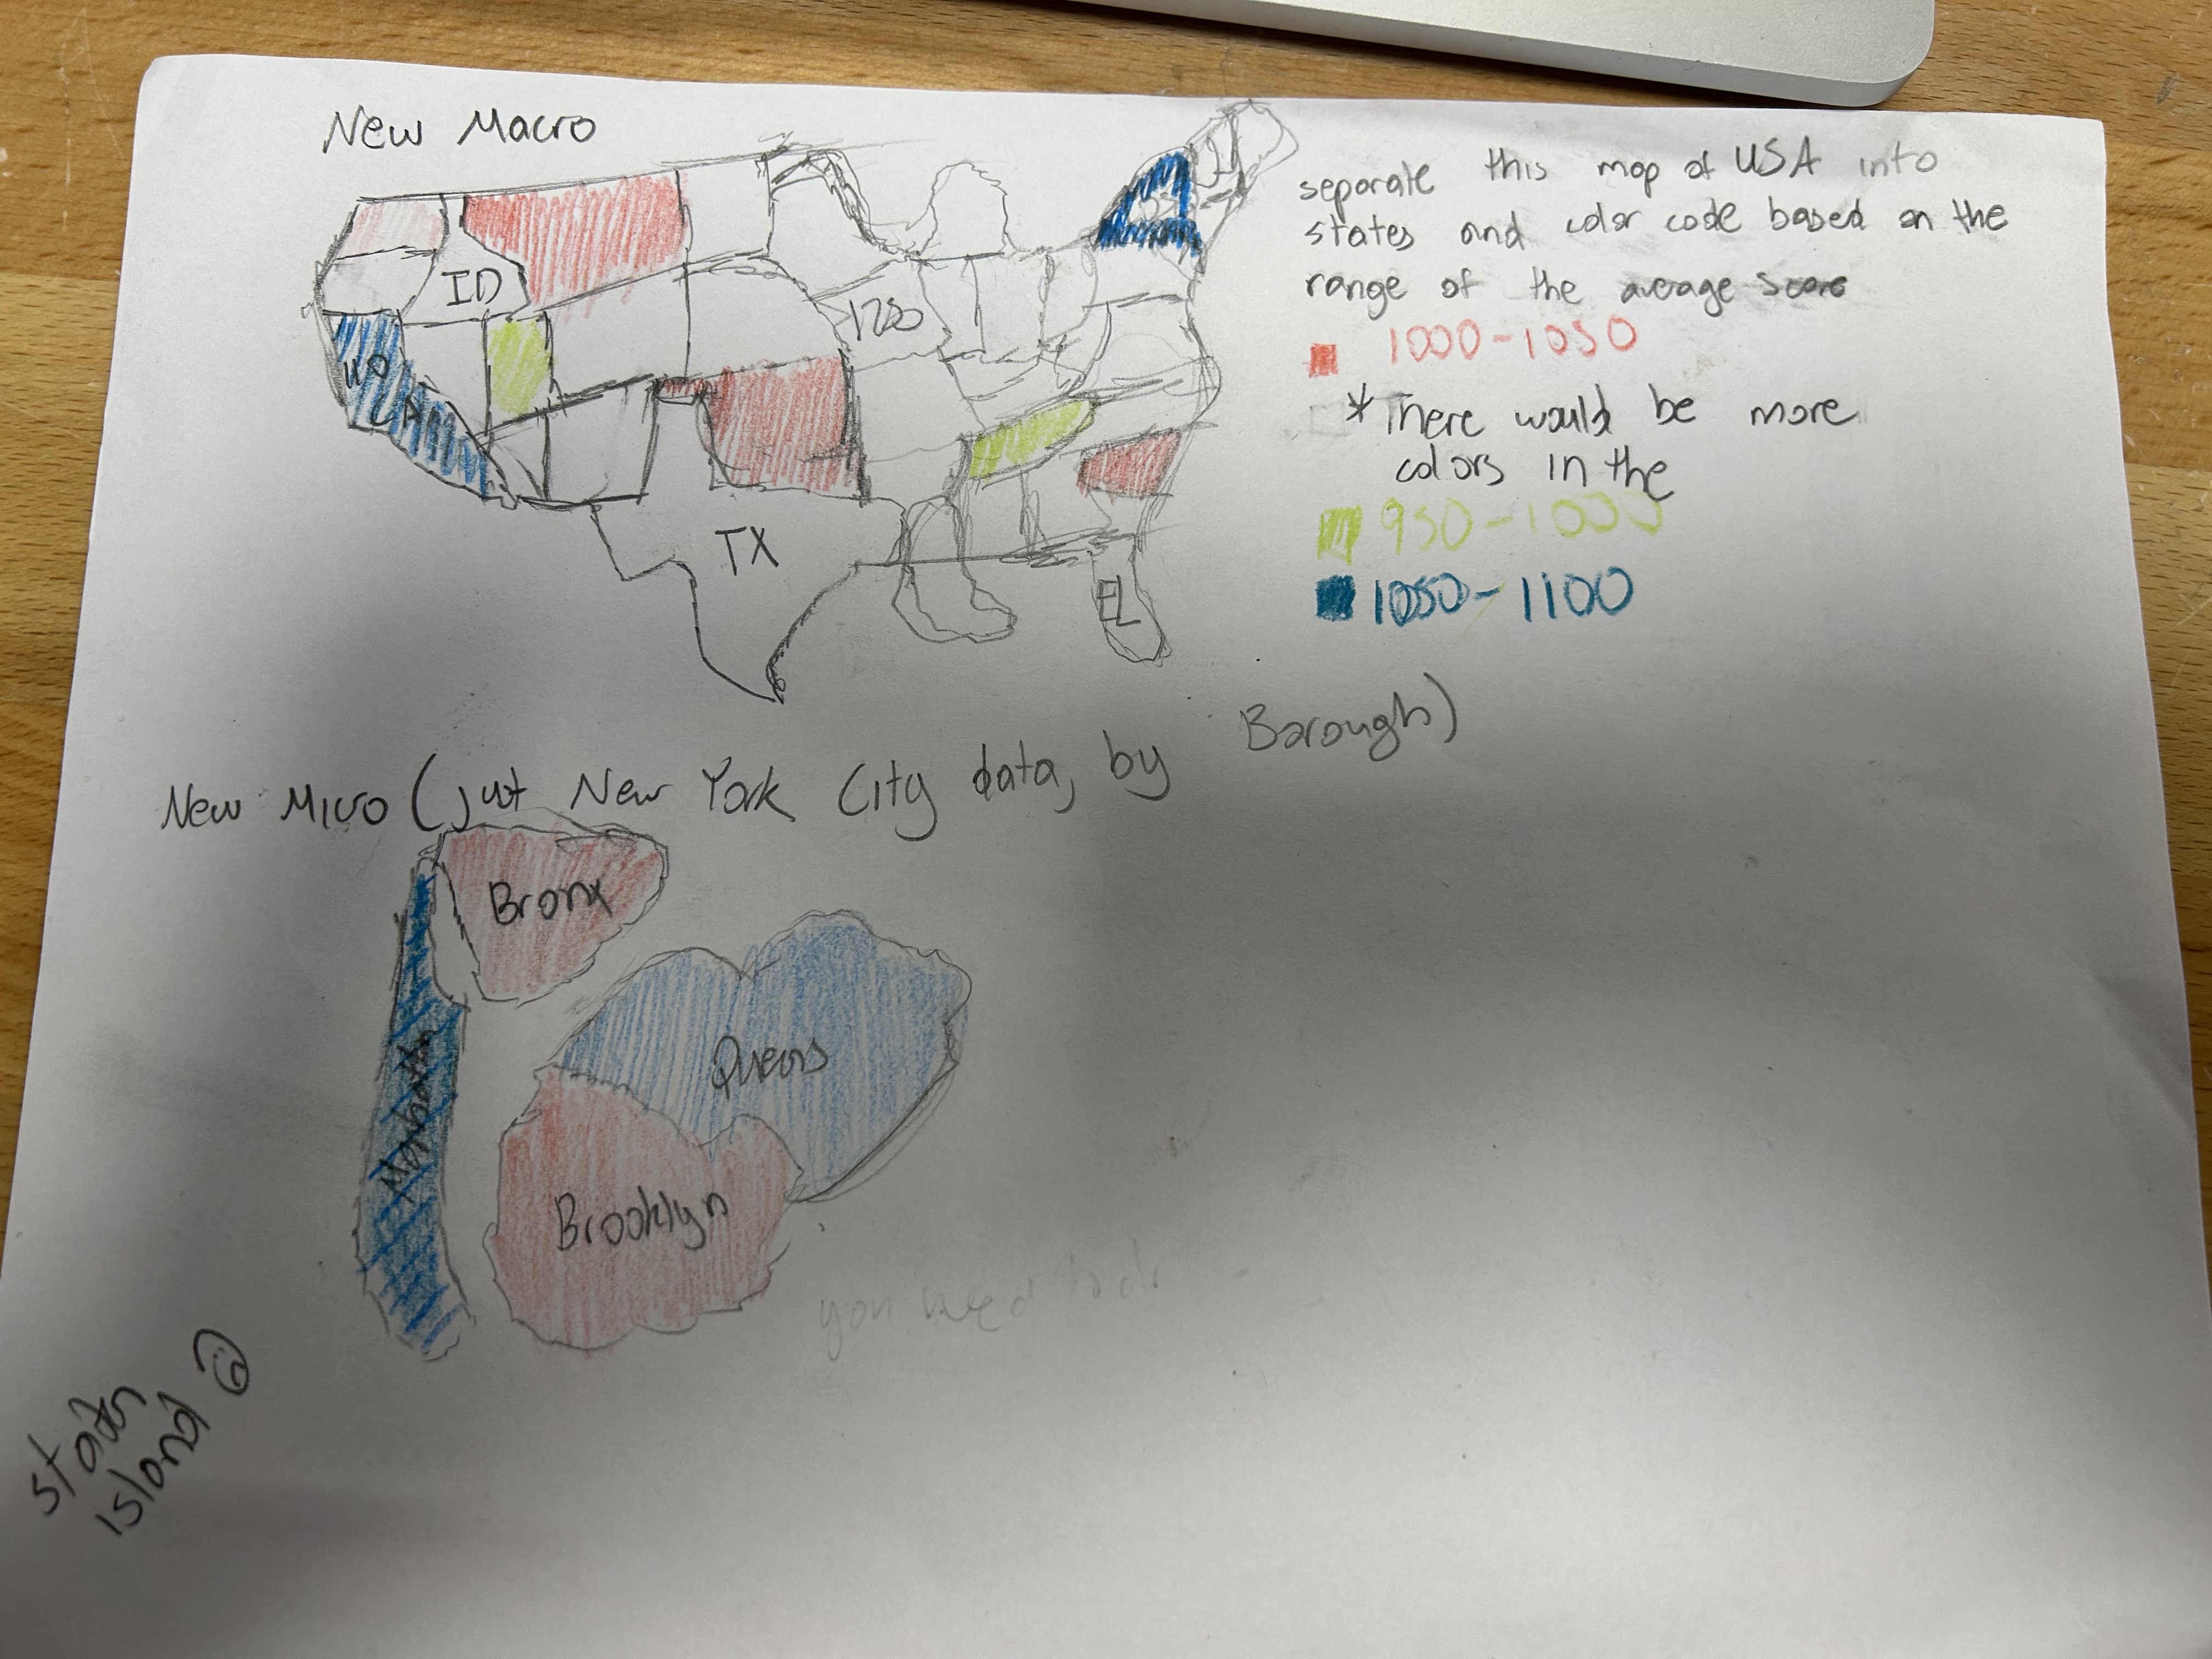 New Macro
ID
TX
FL
separate this map of USA into
states and color code based on the
range of the average score
1000-1050
*There would be more
colors in the
950-100
1050-1100
New Micro (just New York City data, by
Borough)
Manhattan
Bronx
Brooklyn
Queens
Staten
Island
you need to